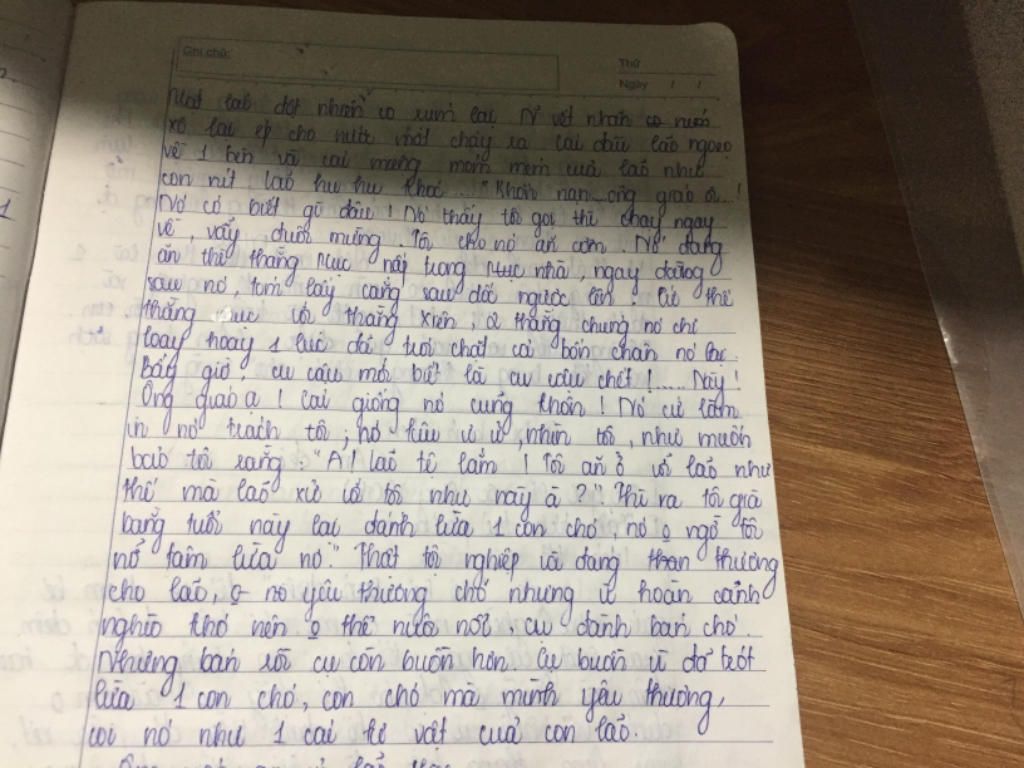 Ghi chú:
Thứ
Ngày / /
Mặt lão đột nhiên co rúm lại. Những vết nhăn xô
xô lại ép cho nước mắt chảy ra. Cái đầu lão ngoẹo
về 1 bên và cái miệng móm mém của lão mếu như
con nít. Lão hu hu khóc. "Khốn nạn, ông giáo ơi!
Nó có biết gì đâu! Nó thấy tôi gọi thì chạy ngay
về, vẫy đuôi mừng. Tôi cho nó ăn cơm. Nó đang
ăn thì thằng Mục nấp trong nhà, ngay đằng
sau nó, tóm lấy cẳng sau dốc ngược lên. Cứ thế
thằng Mục với thằng Xiên, 2 thằng chúng nó chỉ
loay hoay 1 lúc đã trói chặt cả bốn chân nó lại.
Bấy giờ, cu cậu mới biết là cu cậu chết!.....Này!
Ông giáo ạ! Cái giống nó cũng khôn! Nó cứ làm
in nó trách tôi; nó kêu ư ử, nhìn tôi, như muốn
bảo tôi rằng: "A! lão tệ lắm! Tôi ăn ở với lão như
thế mà lão xử với tôi như này à?" Thì ra tôi già
bằng tuổi này lại đánh lừa 1 con chó, nó o ngờ tôi
nỡ tâm lừa nó." Thật tội nghiệp và đáng thương
cho lão, yêu thương chó nhưng vì hoàn cảnh
nghèo khó nên o thể nuôi nổi, cụ đành bán chó.
Nhưng bán rồi cụ còn buồn hơn. Cụ buồn vì đã trót
lừa 1 con chó, con chó mà mình yêu thương,
coi nó như 1 cái kỉ vật của con lão.